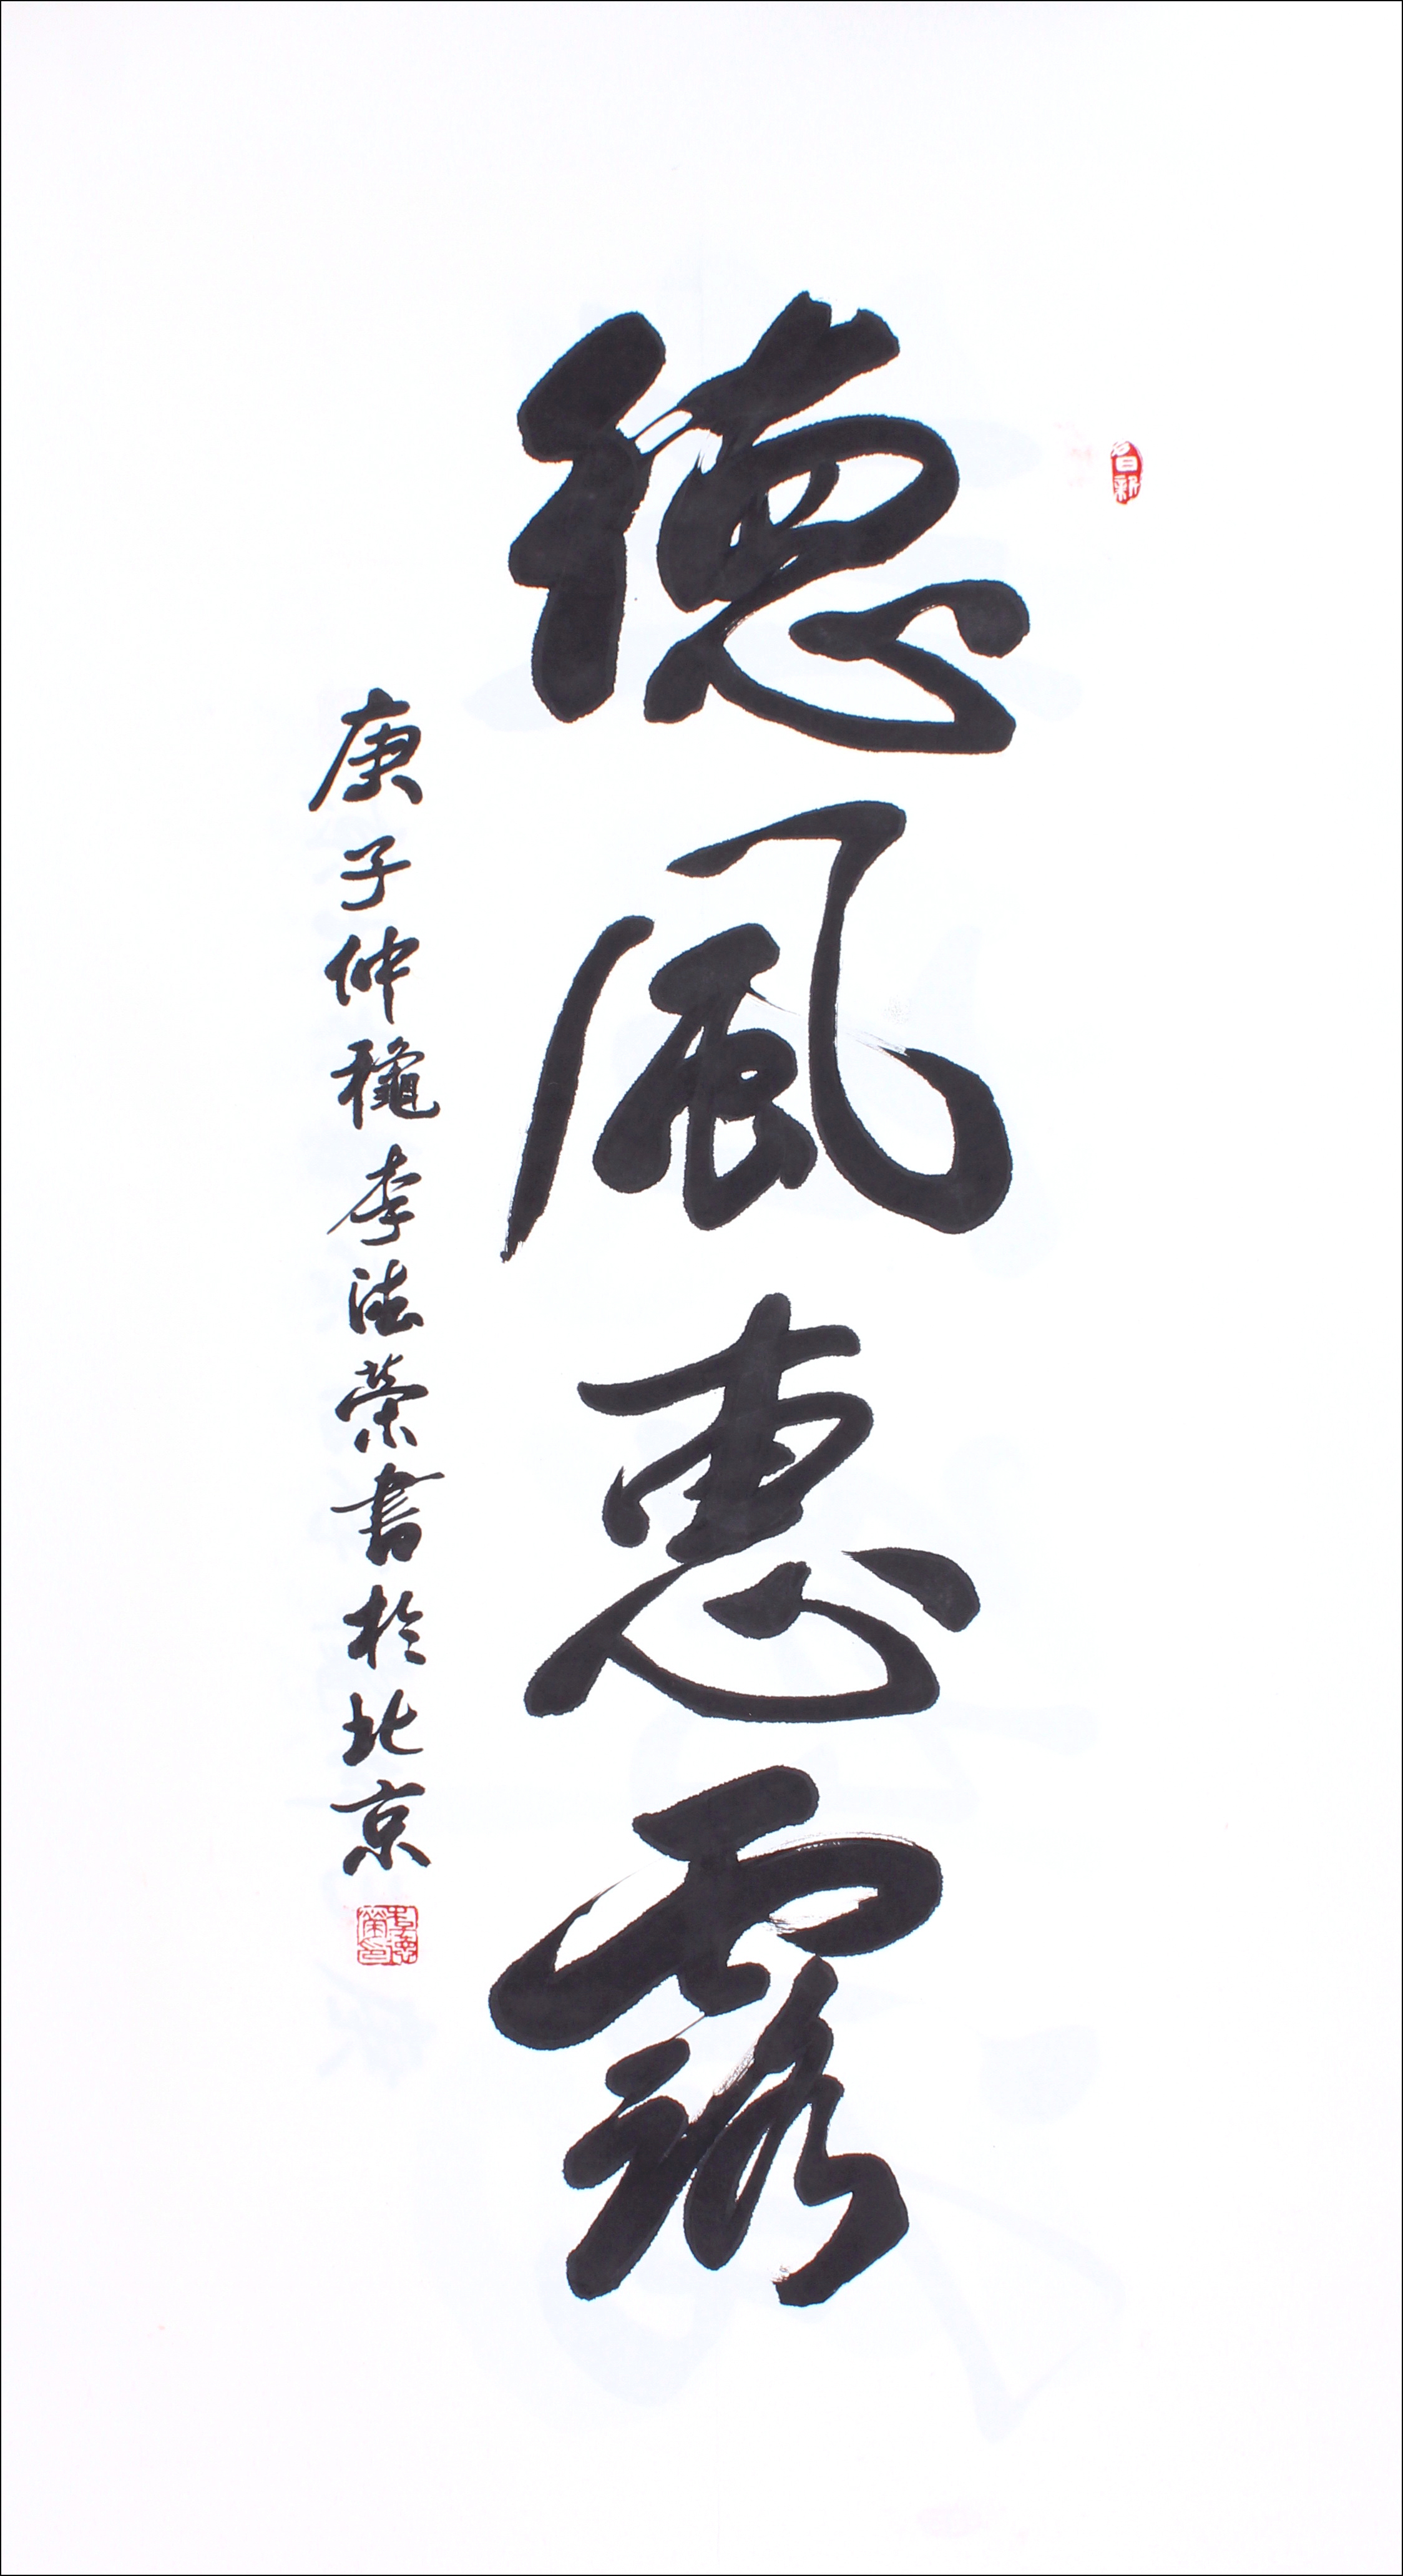 德風惠露
庚子仲龝李法榮書於北京
日新